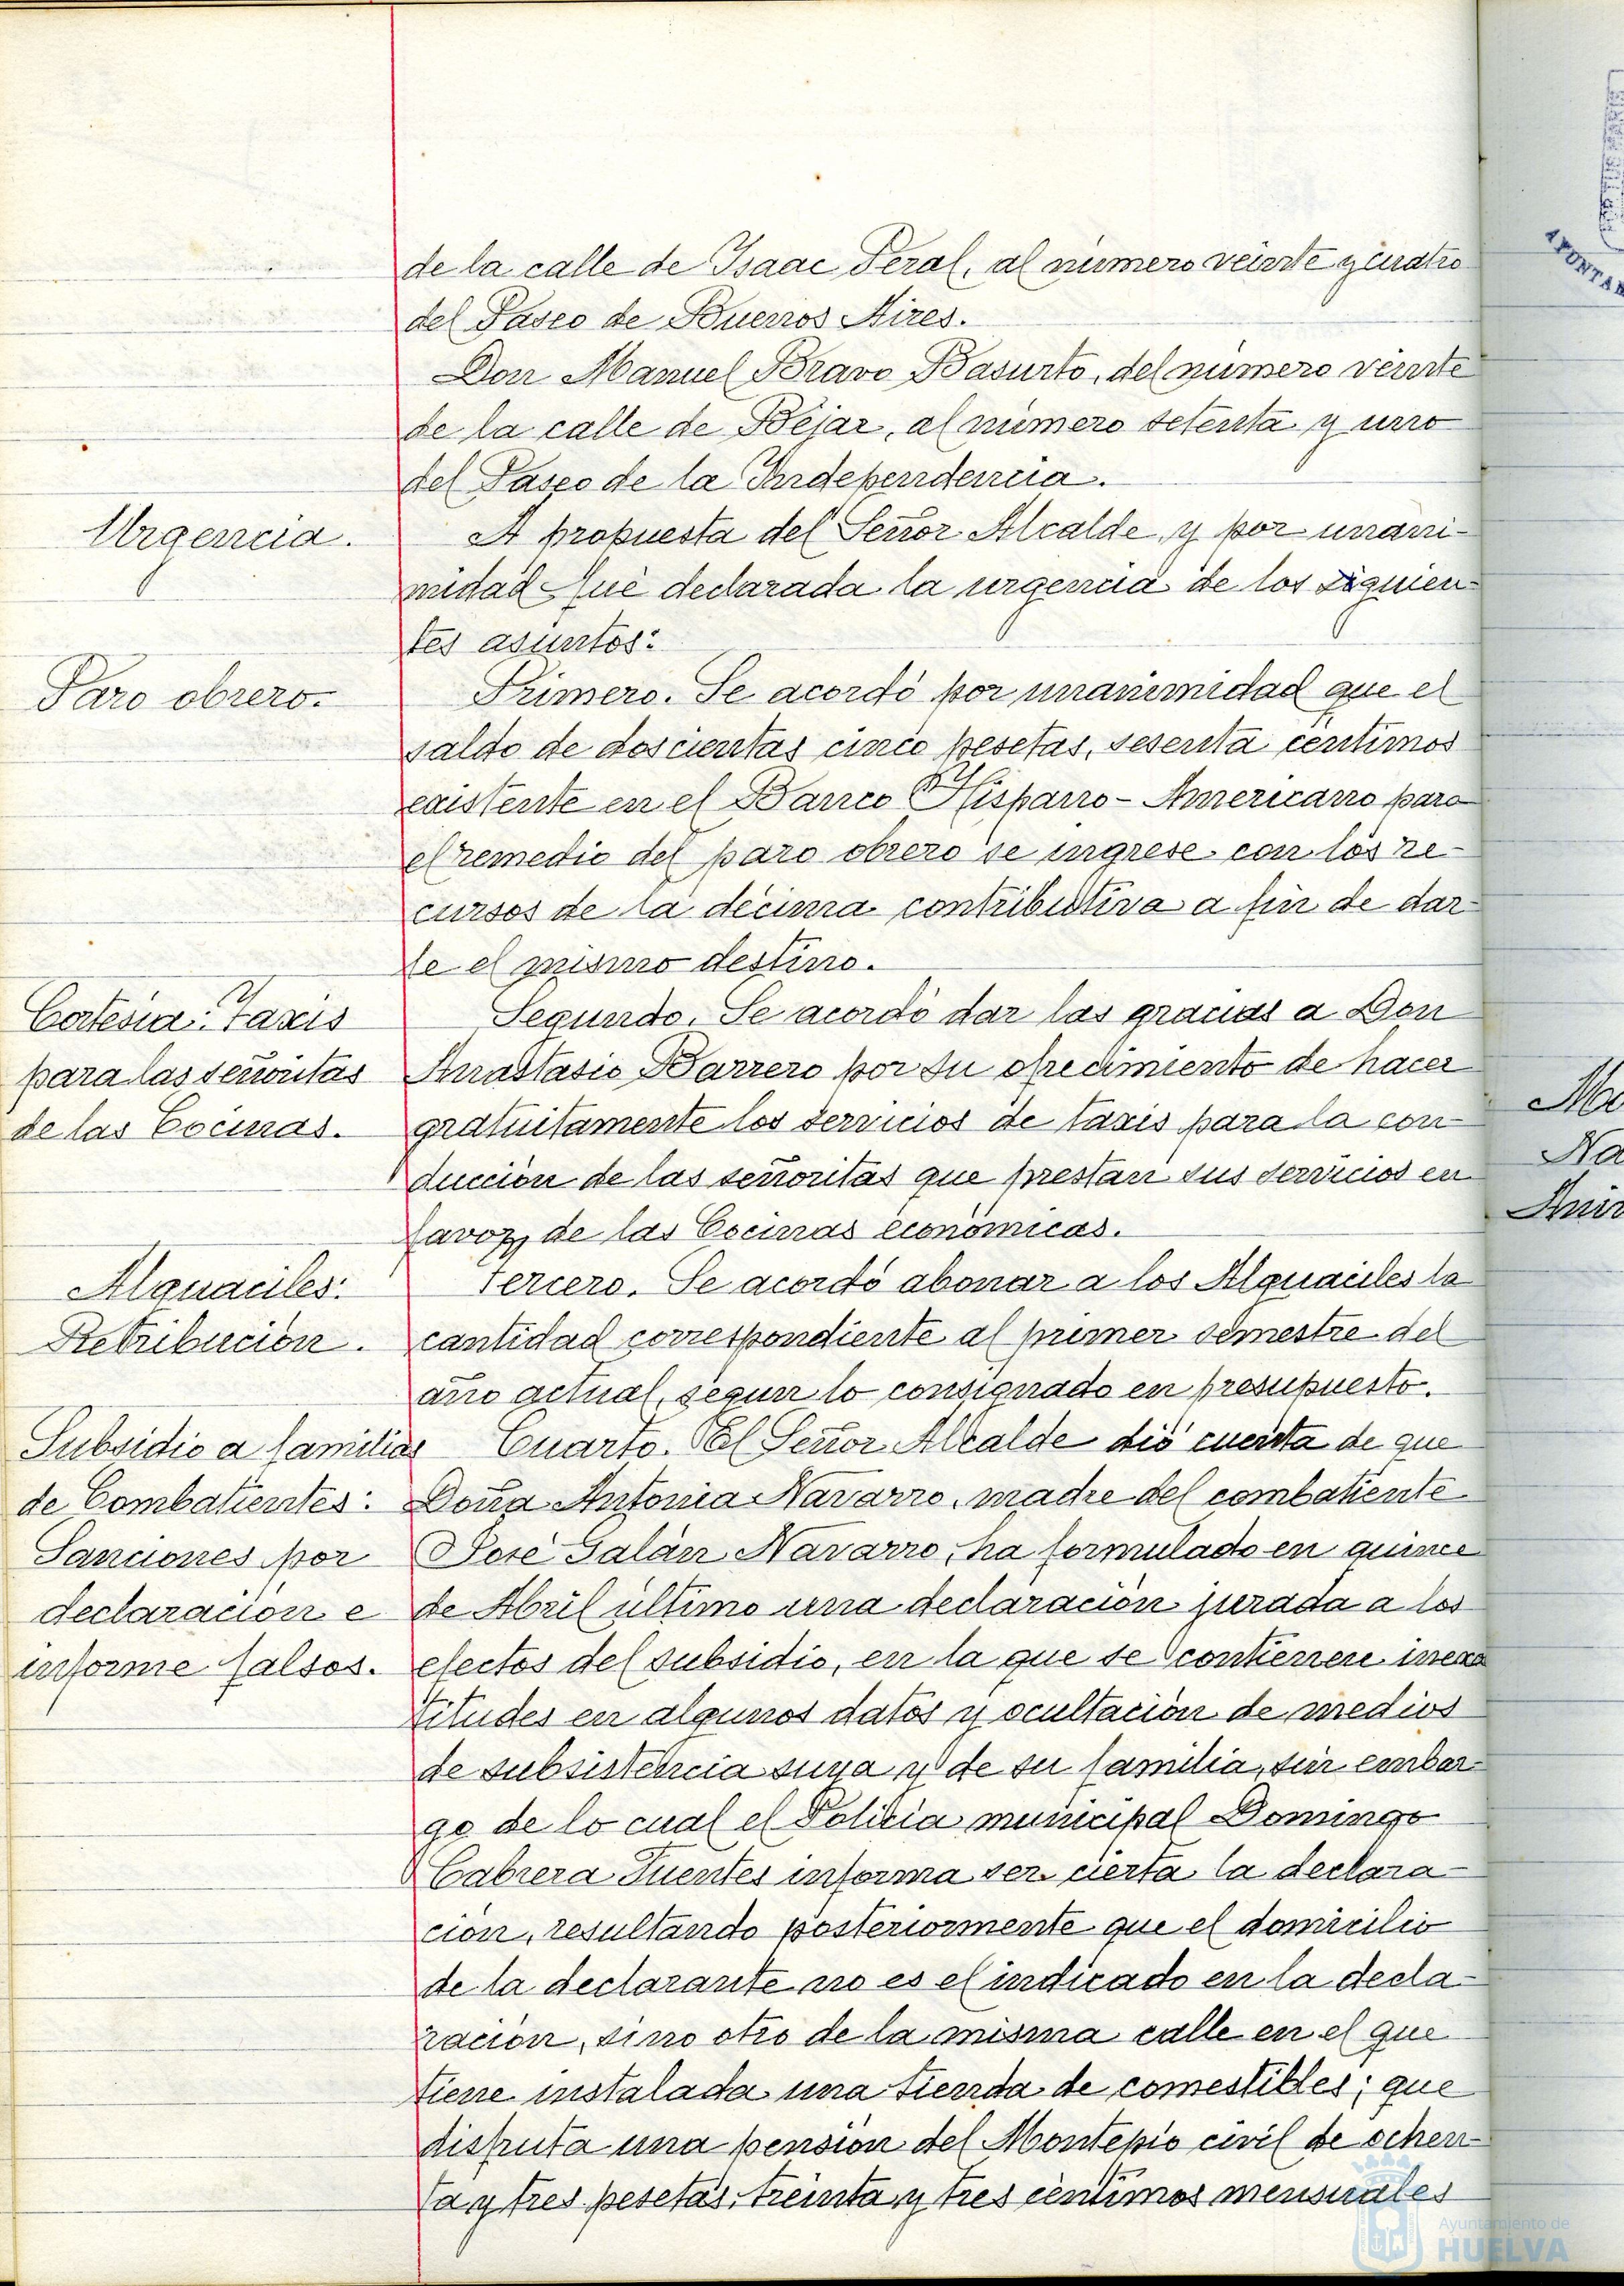 de la calle de Isaac Peral, al número veinte y cuatro
del Paseo de Buenos Aires.
Don Manuel Bravo Basurto, del número veinte
de la calle de Béjar, al número setenta y uno
del Paseo de la Independencia.
Urgencia.
A propuesta del Señor Alcalde y por unani-
midad fué declarada la urgencia de los siguien-
tes asuntos:
Paro obrero.
Primero. Se acordó por unanimidad que el
saldo de doscientas cinco pesetas, sesenta centimos
existente en el Banco Hispano-Americano para
el remedio del paro obrero se ingrese con los re-
cursos de la décima contributiva a fin de dar-
le el mismo destino.
Cortesia: Taxis
para las señoritas
de las Cocinas.
Segundo. Se acordó dar las gracias a Don
Anastasio Barrero por su ofrecimiento de hacer
gratuitamente los servicios de taxis para la con-
ducción de las señoritas que prestan sus servicios en
favor de las Cocinas económicas.
Alguaciles:
Retribución.
Tercero. Se acordó abonar a los Alguaciles la
cantidad correspondiente al primer semestre del
año actual, según lo consignado en presupuesto.
Subsidio a familias
de Combatientes:
Sanciones por
declaración e
informe falsos.
Cuarto. El Señor Alcalde dió cuenta de que
Doña Antonia Navarro, madre del combatiente
José Galán Navarro, ha formulado en quince
de Abril último una declaración jurada a los
efectos del subsidio, en la que se contienen inexac
titudes en algunos datos y ocultación de medios
de subsistencia suya y de su familia, sin embar-
go de lo cual el Policia municipal Domingo
Cabrera Fuentes informa ser cierta la declara-
ción, resultando posteriormente que el domicilio
de la declarante no es el indicado en la decla-
ración, sino otro de la misma calle en el que
tiene instalada una tienda de comestibles; que
disfruta una pensión del Montepio civil de ochen-
ta y tres pesetas, treinta y tres céntimos mensuales
Ayuntamiento de
HUELVA